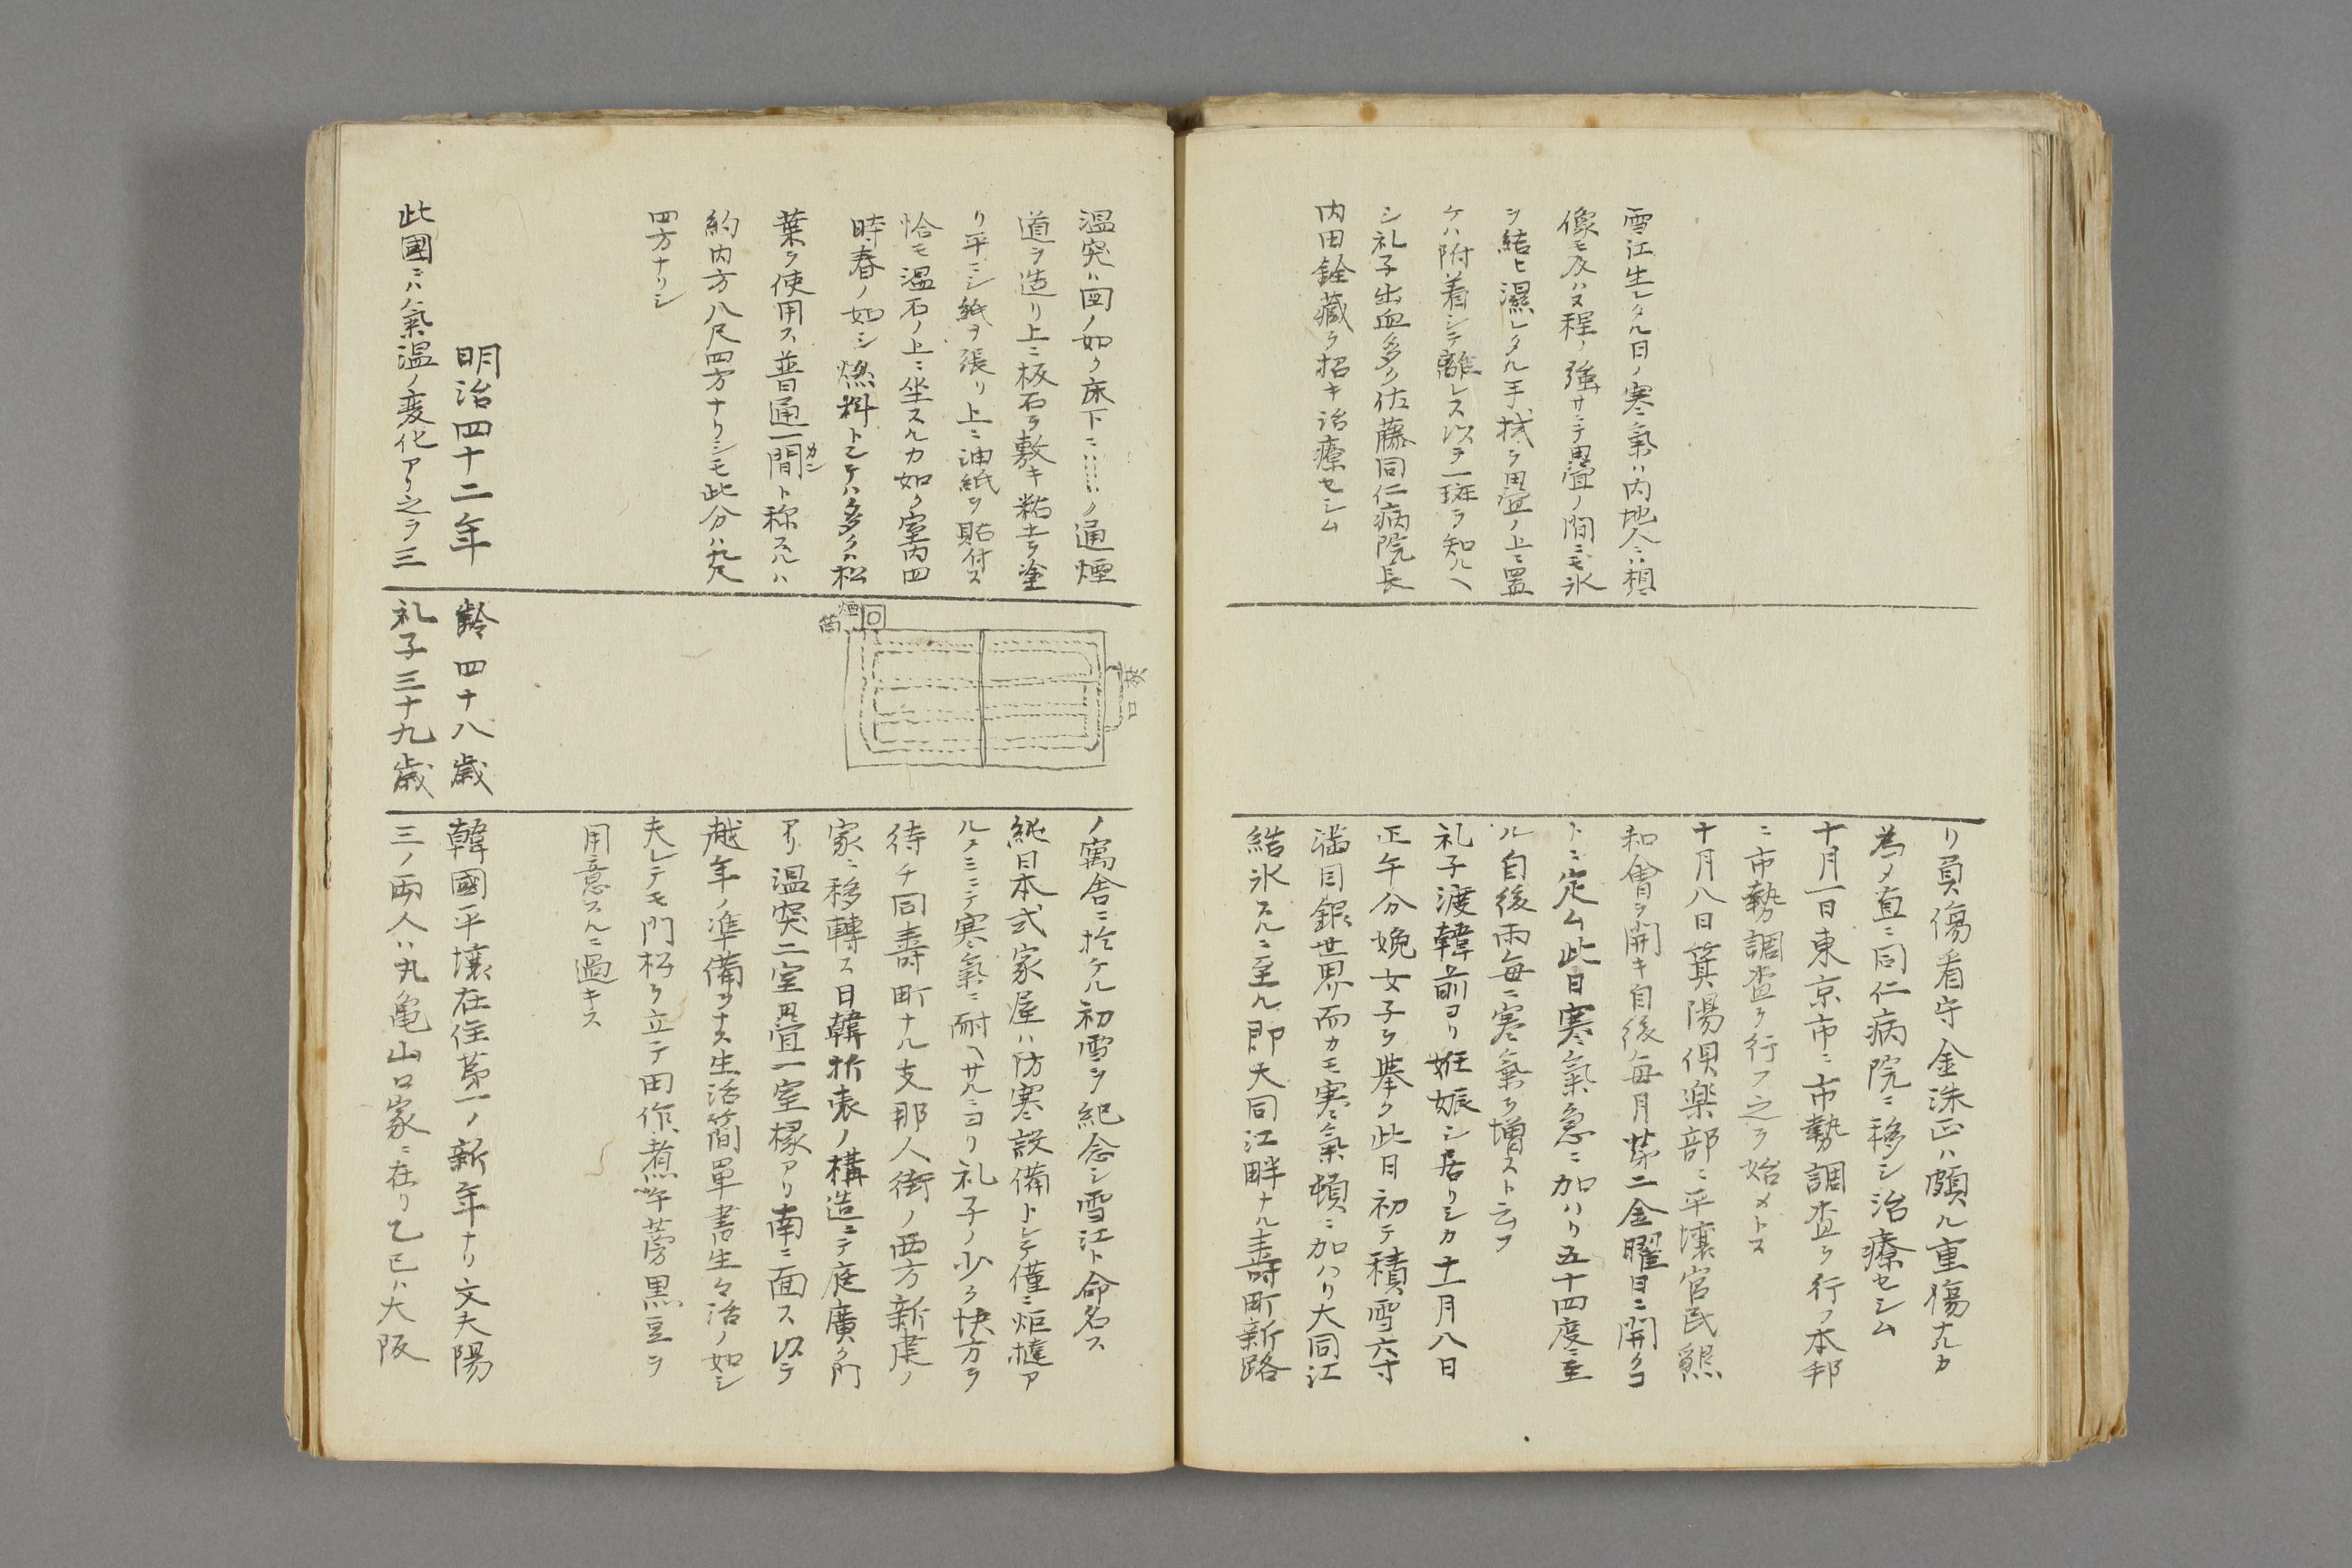 雪江生レタル日ノ寒氣ハ内地人ニハ想
像モ及ハヌ程ノ強サニテ畳ノ間ニモ氷
ヲ結ヒ濕レタル手拭ヲ畳ノ上ニ置
ケハ附着シテ離レス以テ一斑ヲ知ルヘ
シ礼子出血多ク佐藤同仁病院長
内田銓藏ヲ招キ治療セシム
リ員傷看守金洙正ハ頗ル重傷ナルカ
為メ直ニ同仁病院ニ移シ治療セシム
十月一日東京市ニ市勢調査ヲ行フ本邦
ニ市勢調査ヲ行フ之ヲ始メトス
十月八日箕陽倶楽部ニ平壤官民懇
和會ヲ開キ自後毎月第二金曜日ニ開クコ
トニ定ム此日寒氣急ニ加ハリ五十四度ニ至
ル自後雨毎ニ寒氣ヲ増スト云フ
礼子渡韓前ヨリ姙娠シ居リシカ十一月八日
正午分娩女子ヲ挙ク此日初テ積雪六寸
満目銀世界而カモ寒氣頓ニ加ハリ大同江
結氷スルニ至ル即大同江畔ナル壽町新路
温突ハ図ノ如ク床下ニ⋯⋯ノ通煙
道ヲ造リ上ニ板石ヲ敷キ粘土ヲ塗
リ平ニシ紙ヲ張リ上ニ油紙ヲ貼付ス
恰モ温石ノ上ニ坐スルカ如ク室内四
時春ノ如シ燃料トシテハ多クハ松
葉ヲ使用ス普通一間カント称スルハ
約内方八尺四方ナリシモ此分ハ九尺
四方ナリシ
焚口
煙筒
回
ノ寓舎ニ於ケル初雪ヲ紀念シ雪江ト命名ス
純日本式家屋ハ防寒設備トシテ僅ニ炬燵ア
ルノミニテ寒氣ニ耐ヘサルニヨリ礼子ノ少ク快方ヲ
待チ同壽町ナル支那人街ノ西方新建ノ
家ニ移轉ス日韓折衷ノ構造ニテ庭廣ク門
アリ温突二室畳一室椽アリ南ニ面ス以テ
越年ノ準備ヲナス生活簡單書生々活ノ如シ
夫レテモ門松ヲ立テ田作煮牛蒡黒豆ヲ
用意スルニ過キス
明治四十二年
齢四十八歳
韓國平壤在住第一ノ新年ナリ文夫陽
此國ニハ氣温ノ変化アリ之ヲ三
礼子三十九歳
三ノ両人ハ丸亀山口家ニ在リ乙巳ハ大阪